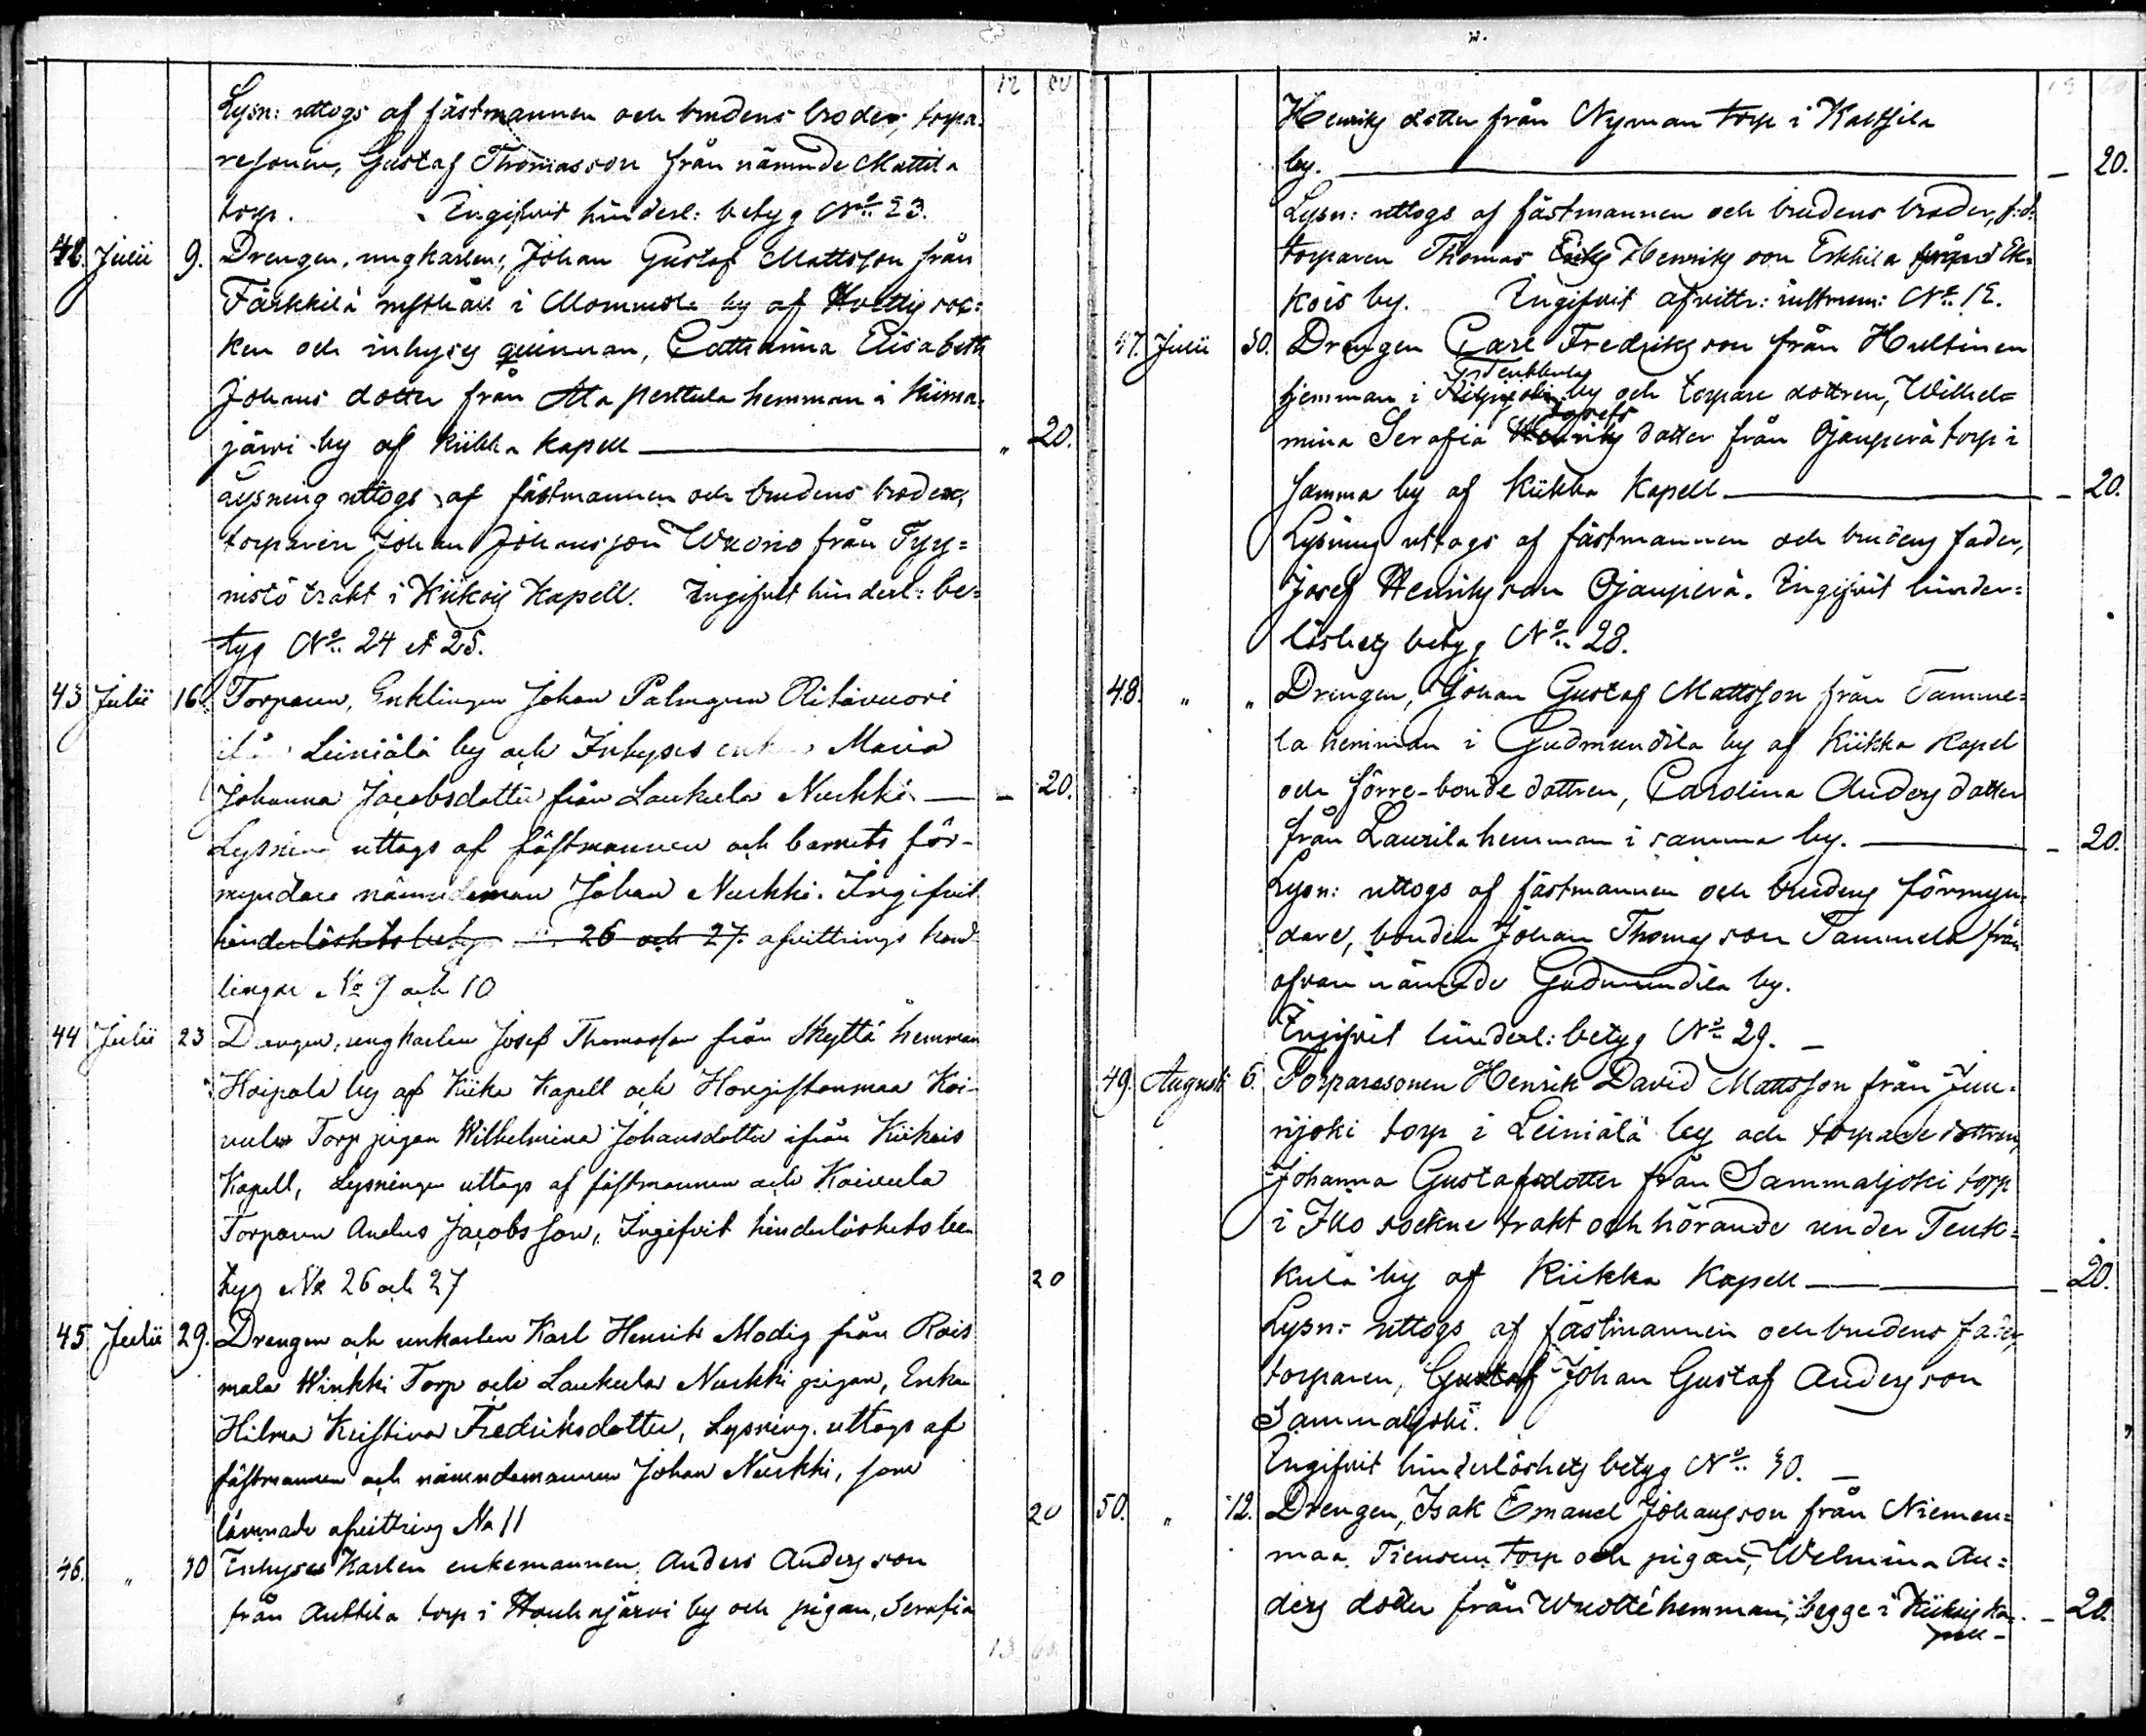 12 80
Lysn: uttogs af fästmannen och brudens broder, torpa=
resonen, Gustaf Thomasson från nämnde Mattila
torp. Ingifvit hinderl: betyg No 23.
42. Julii 9. Drengen, ungkarlen, Johan Gustaf Mattsson från
Färkkilä rusthåll i Mommola by af Hvittis soc=
ken och inhyses qvinnan, Catharina Elisabeth
Johans dotter från Ala Perttula hemman i Kiima=
järvi by af Kiikka Kapell — " 20.
Lysning uttogs af fästmannen och brudens broder,
torparen Johan Johansson Wuorio från Tyy=
nistö trakt i Kiikois Kapell. Ingifvit hinderl: be=
tyg No 24 et 25.
43 Julii 16. Torparen, Enklingen Johan Palmgren Ritavuori
Leiniälä by och Inhyses Maria
Johanna Jacobsdotter från Laukula Nukki — 20.
Lysning uttogs af fästmannen och barnets för-
myndare nämndeman Johan Nukki. Ingifvit
hinderlöshets betyg 26 och 27. afvittrings hand
lingar No 9 och 10
44 Julii 23 Drengen, ungkarlen Josef Thomasson från Skyttä hemman
i Hoipola by af Kiika Kapell och Horgistenmaa Koi-
vula Torp pigan Wilhelmina Johansdotter ifrån Kiikois
Kapell, Lysningen uttogs af fästmannen och Koivula
Torparen Anders Jacobsson, Ingifvit hinderlöshets be
tyg No 26 och 27 20
45 Julii 29. Drengen och unkarlen Karl Henrik Modig från Rois
mala Winkki Torp och Laukula Nukki pigan, Enka
Hilma Kristina Fredriksdotter, Lysning uttogs af
fästmannen och nämndemannen Johan Nukki, som
lämnade afvittring No 11 20
46. " 30 Inhyses Karlen enkemannen, Anders Andersson
från Anttila torp i Houhajärvi by och pigan, Serafia
13 60
Henriks dotter från Nyman torp i Kaltsila
by. — 20.
Lysn: uttogs af fästmannen och brudens broder, f:d:
torparen Thomas Eriks Henriks son Erkkilä från Ek=
kois by. Ingifvit afvittr: instrum: No 12.
47. Julii 30. Drengen Carl Fredriksson från Hultinen
Teukkula
hemman i by och torpare dottren, Wilhel=
Josefs
mina Serafia Henriks dotter från Ojanperä torp i
samma by af Kiikka Kapell — 20.
Lysning uttogs af fästmannen och brudens fader,
Josef Henriksson Ojanperä. Ingifvit hinder=
löshets betyg No 28.
48. " " Drengen, Johan Gustaf Mattsson från Tamme=
la hemman i Gudmundila by af Kiikka Kapel
och förre-bonde dottren, Carolina Anders dotter
från Laurila hemman i samma by. — 20.
Lysn: uttogs af fästmannen och brudens förmyn=
dare, bonden Johan Thomasson Tammela från
ofvan nämnde Gudmundila by.
Ingifvit hinderl: betyg No 29. —
49. Augusti 6. Torparesonen Henrik David Mattsson från Juu=
rijoki torp i Leiniälä by och torpare dottren,
Johanna Gustafsdotter från Sammaljoki torp
i Illo sockne trakt och hörande under Teuk=
kula by af Kiikka Kapell — 20.
Lysn: uttogs af fästmannen och brudens fader,
torparen, Gustaf Johan Gustaf Andersson
Sammaljoki.
Ingifvit hinderlöshets betyg No 30. —
50. " 12. Drengen, Isak Emanuel Johansson från Niemen=
maa torp och pigan, Welmina An=
ders dotter från Wuolté hemman, begge i Kiikois Ka= — 20.
pell —